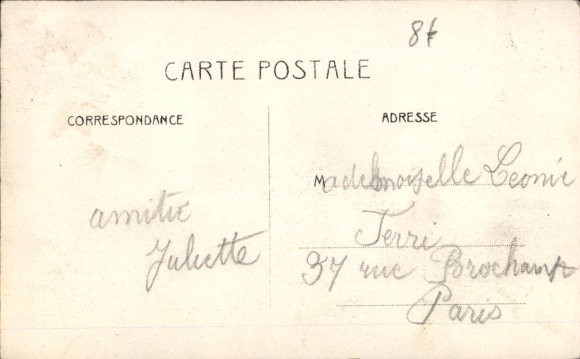 8f
CARTE POSTALE
CORRESPONDANCE
ADRESSE
amitié
Juliette
Mademoiselle Leonie
Ferri
37 rue Brochant
Paris